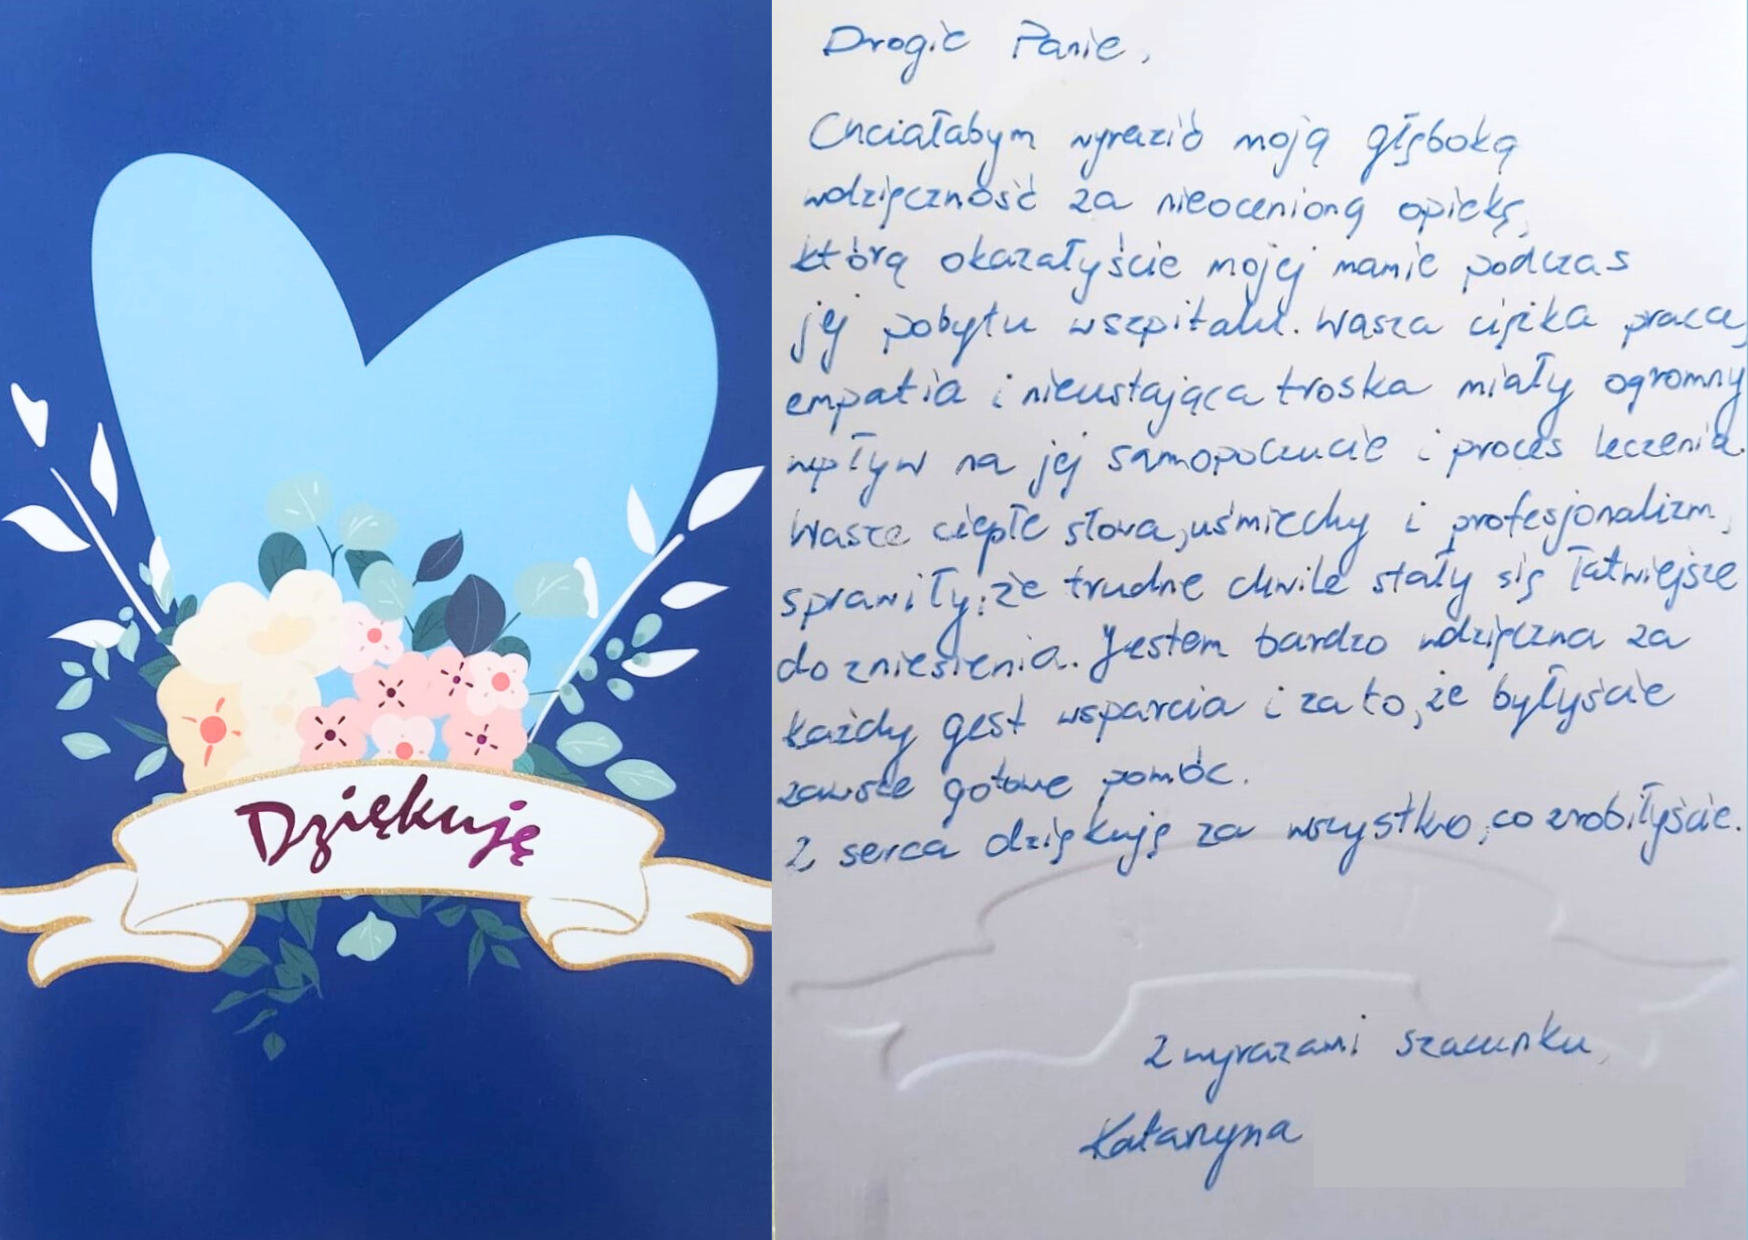 Dziękuję
Drogie Panie,
Chciałabym wyrazić moją głęboką
wdzięczność za nieocenioną opiekę,
którą okazałyście mojej mamie podczas
jej pobytu w szpitalu. Wasza ciężka praca,
empatia i nieustająca troska miały ogromny
wpływ na jej samopoczucie i proces leczenia.
Wasze ciepłe słowa, uśmiechy i profesjonalizm,
sprawiły, że trudne chwile stały się łatwiejsze
do zniesienia. Jestem bardzo wdzięczna za
każdy gest wsparcia i za to, że byłyście
zawsze gotowe pomóc.
Z serca dziękuję za wszystko, co zrobiłyście.
Z wyrazami szacunku,
Katarzyna